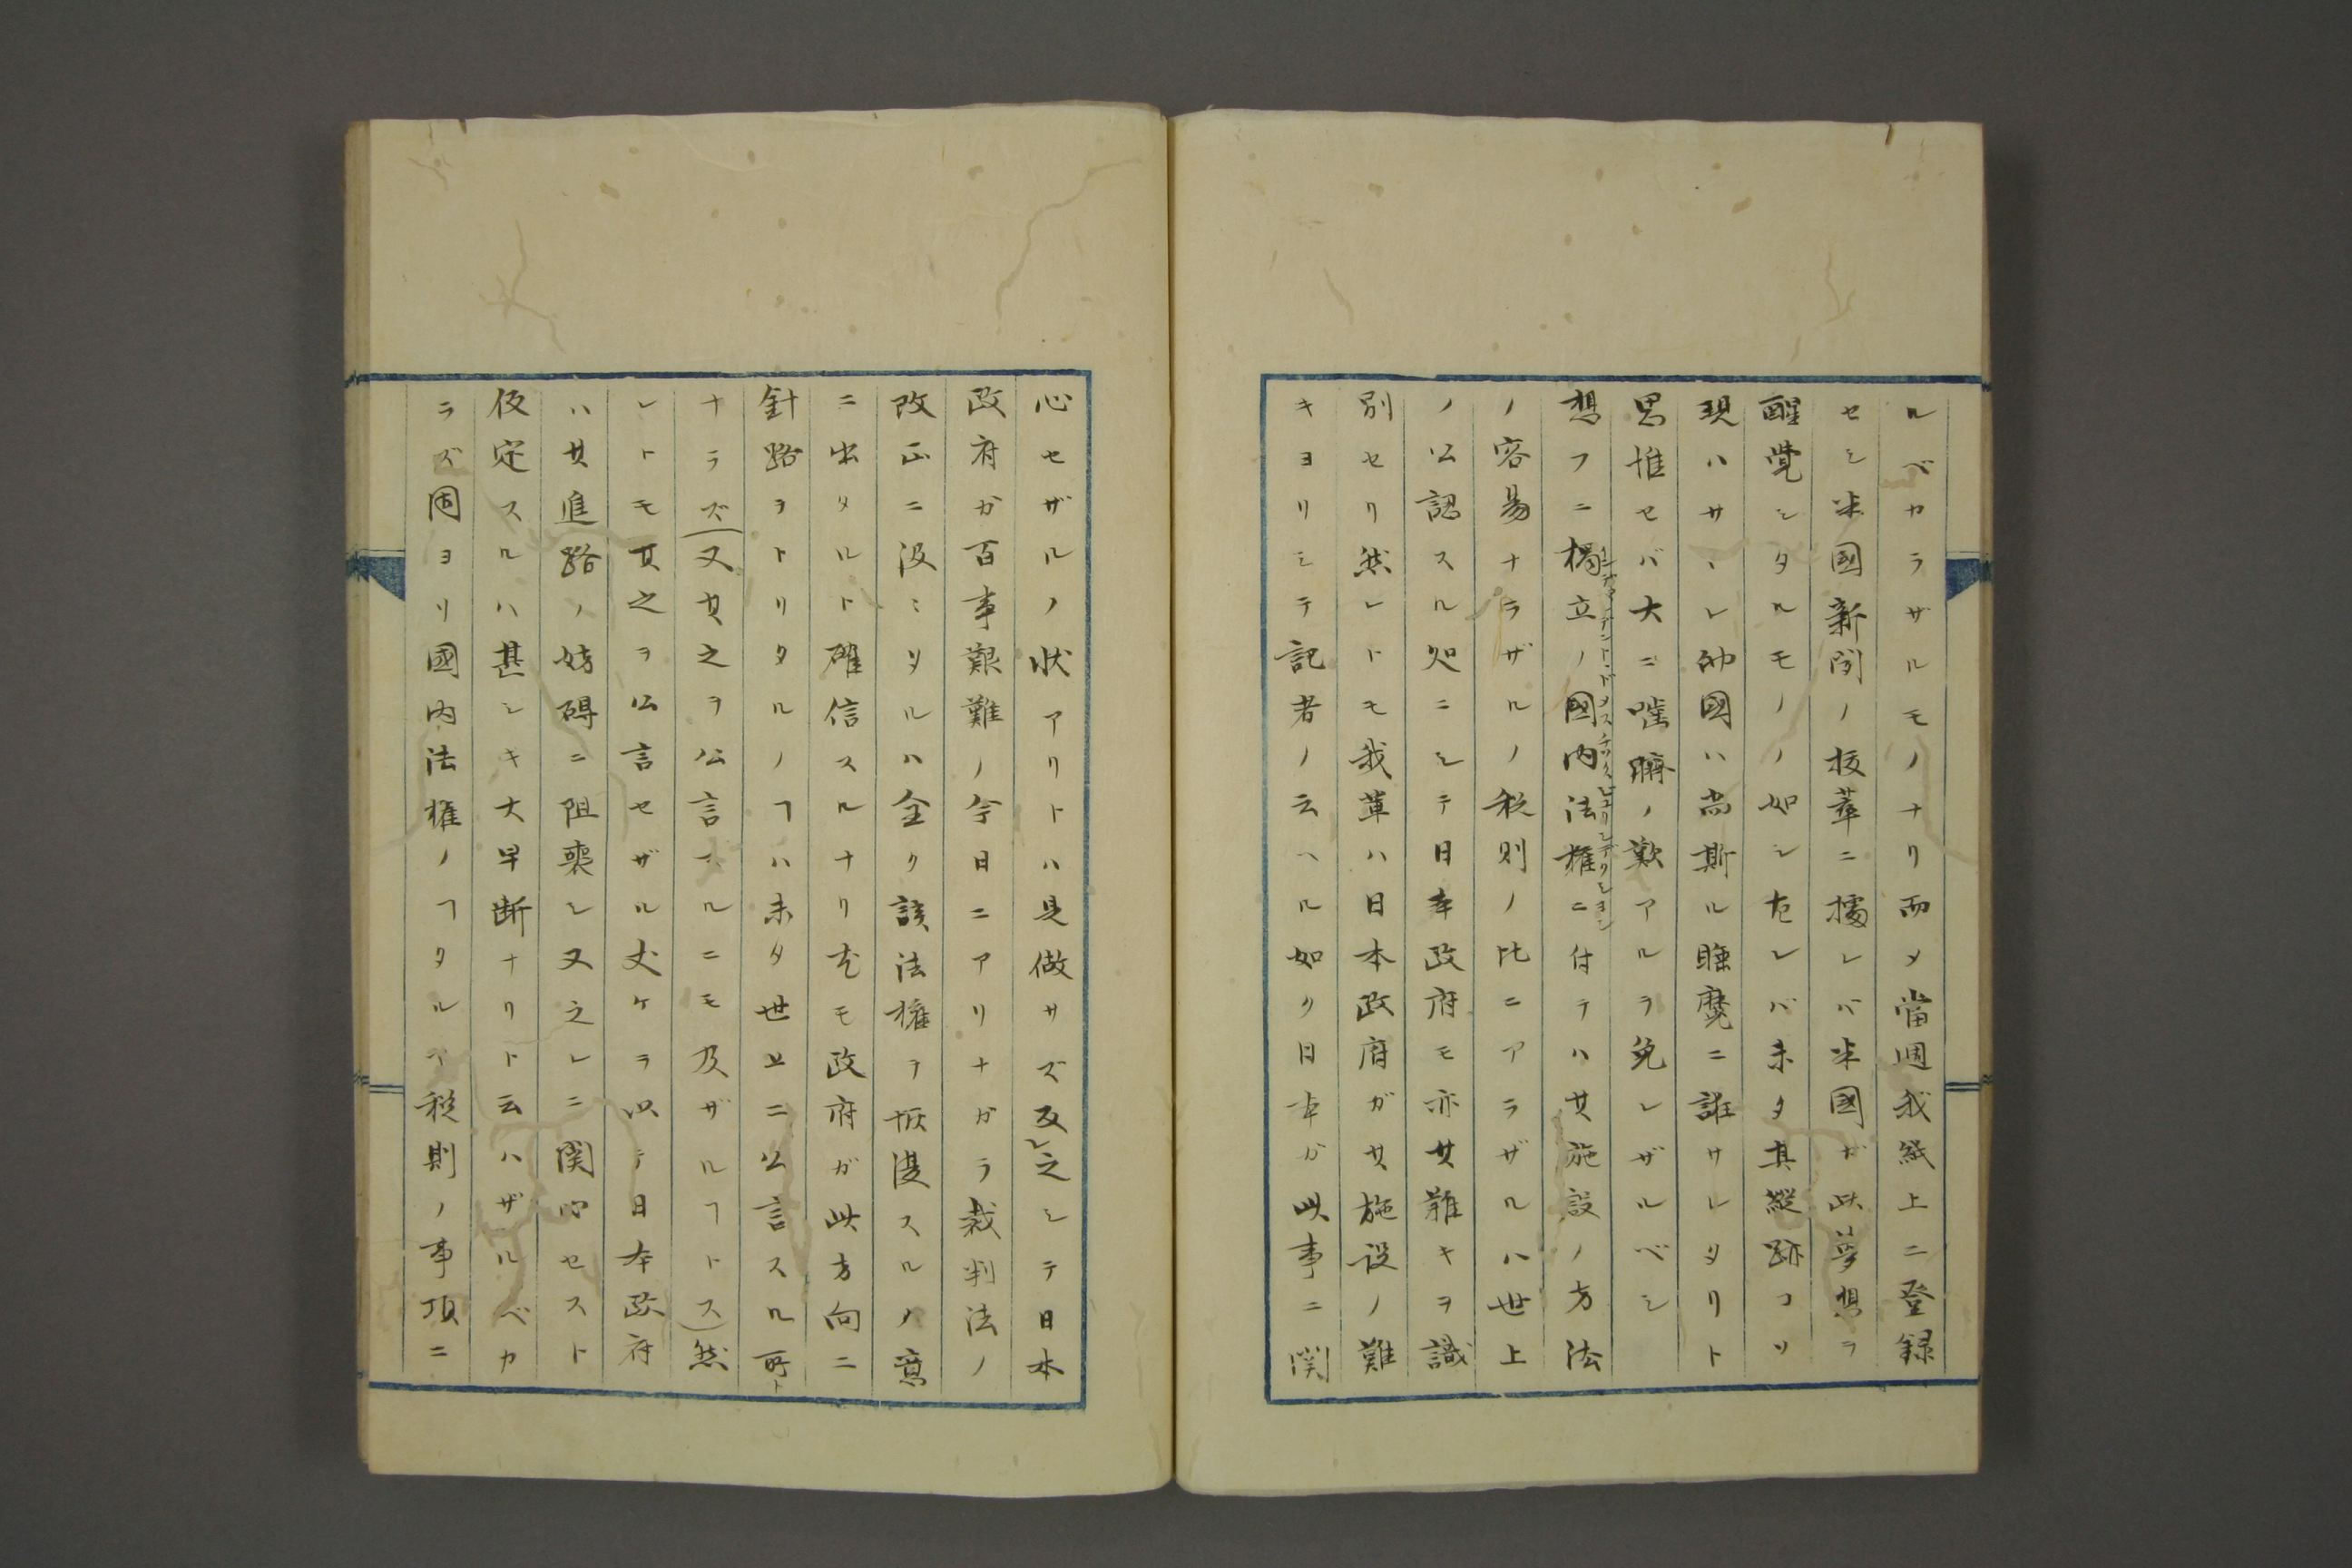 ルベカラザルモノナリ而メ當週我紙上ニ登録
セシ米國新聞ノ抜萃ニ據レバ米國ガ此夢想ヲ
醒覚シタルモノヽ如シ左レバ未タ其縦跡コソ
現ハサヽレ仲國ハ尚斯ル睡魔ニ誰サレタリト
思惟セバ大ニ噬臍ノ歎アルヲ免レザルベシ
想フニ獨立ノ國内法権ニ付テハ其施設ノ方法
ノ容易ナラザルノ税則ノ比ニアラザルハ世上
ノ公認スル処ニシテ日本政府モ亦其難キヲ識
別セリ然レトモ我輩ハ日本政府ガ其施設ノ難
キヨリシテ記者ノ云ヘル如ク日本ガ此事ニ関
心セザルノ状アリトハ見做サズ反レ之シテ日本
政府ガ百事艱難ノ今日ニアリナガラ裁判法ノ
改正ニ汲ミタルハ全ク該法権ヲ恢復スルノ意
ニ出タルト確信スルナリ尤モ政府ガ此方向ニ
針路ヲトリタルノヿハ未タ世上ニ公言スル所ト
ナラズ又其之ヲ公言スルニモ及ザルヿトス然
レトモ其之ヲ公言セザル丈ケヲ以テ日本政府
ハ其進路ノ妨碍ニ阻喪シ又之レニ関心セスト
仮定スルハ甚シキ大早断ナリト云ハザルベカ
ラズ固ヨリ國内法権ノヿタルヤ税則ノ事項ニ